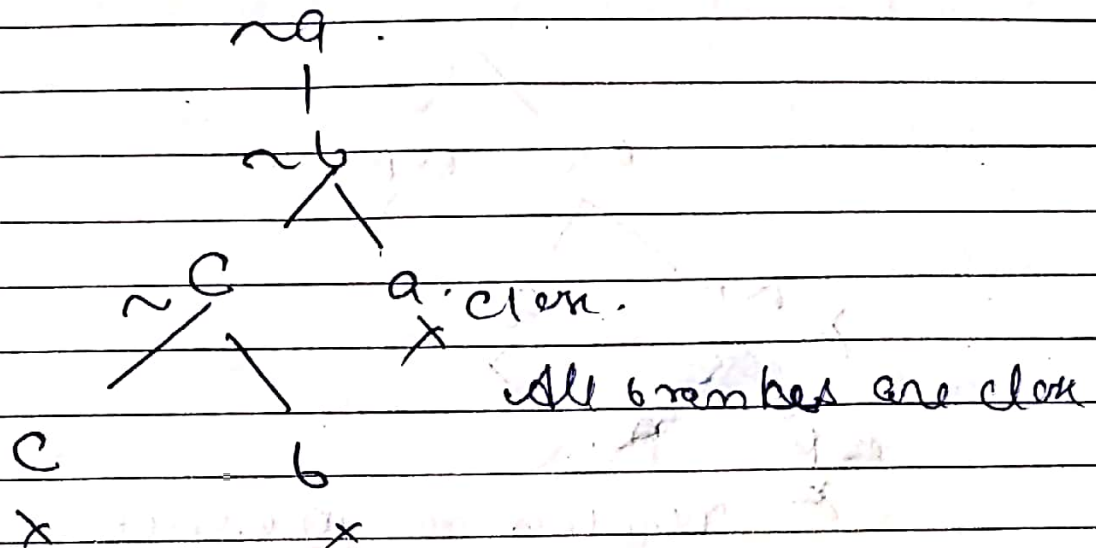 ~a .
~b
~C a . close .
x
All branches are close
C b
x x